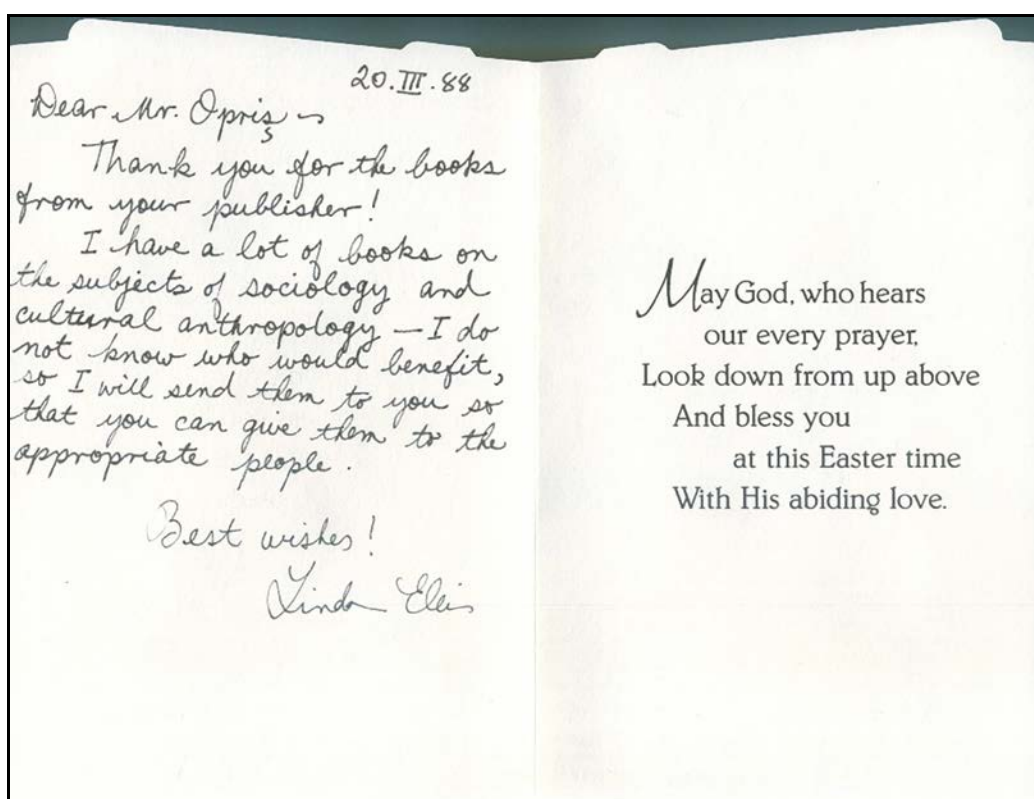 20.III.88
Dear Mr. Opriș –
Thank you for the books
from your publisher!
I have a lot of books on
the subjects of sociology and
cultural anthropology – I do
not know who would benefit,
so I will send them to you so
that you can give them to the
appropriate people.
Best wishes!
Linda Ellis
May God, who hears
our every prayer,
Look down from up above
And bless you
at this Easter time
With His abiding love.